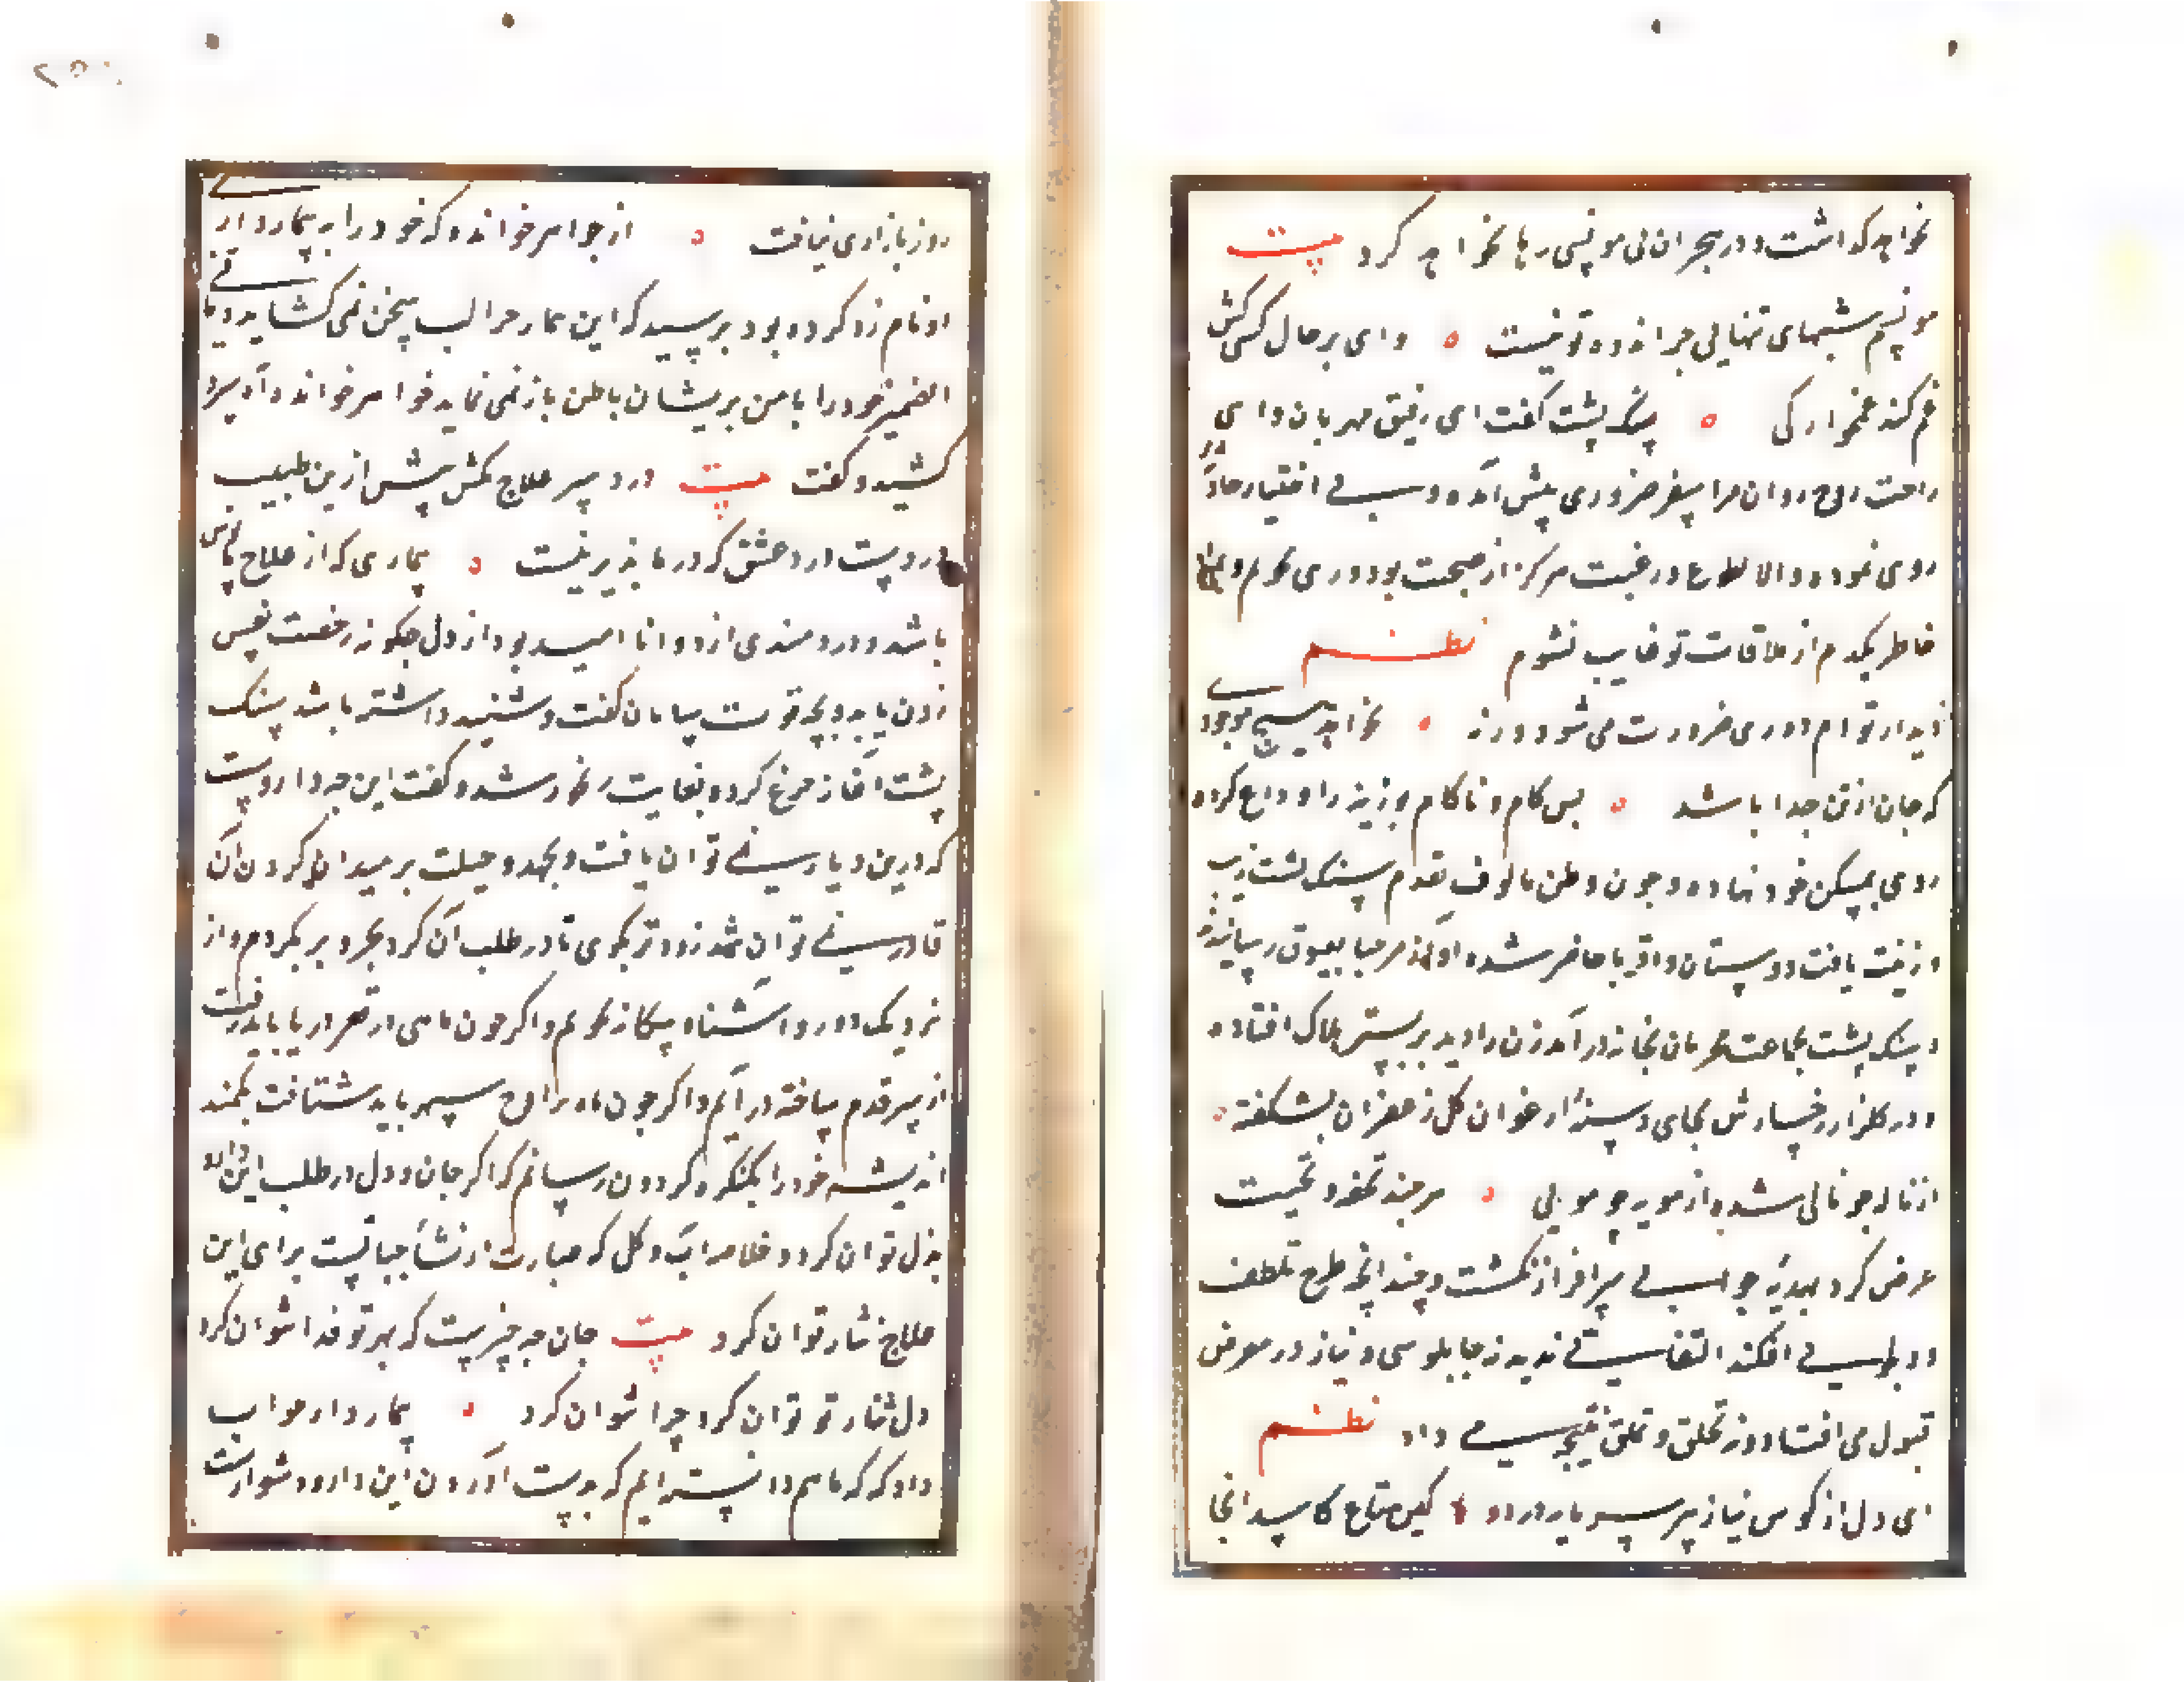 نخواهد گذاشت و در هجران بی مونسی رها نخواهد کرد بیت
مونسم شبهای تنهایی جز اندوه تو نیست ه وای بر حال کسی کش
غم کند غمخوارگی ه سنگ پشت گفت ای رفیق مهربان و ای
راحت روح روان مرا سفر ضروری پیش آمده و بی اختیار حادثه
روی نموده و الا بطوع و رغبت هرگز از صحبت تو دوری نجویم و
خاطر یکدم از ملاقات تو غایب نشوم نظم
ز دیدار توام دوری ضرورت می شود ورنه ه نخواهد هیچ موجودی
که جان از تن جدا باشد ه پس کام و ناکام بوزینه را وداع کرده
روی بمسکن خود نهاده و چون وطن مالوف بقدوم سنگ پشت زیب
و زینت یافت دوستان و اقربا حاضر شده آواز مرحبا بعیوق رسانیدند
و سنگ پشت بجماعت محرمان بخانه درآمد زن را دید بر بستر هلاک افتاده
و در گلزار رخسارش بجای دسته ارغوان گل زعفران بشکفته ه
از ناله چو نالی شده و از مویه چو مویی ه هر چند تحفه و تحیت
عرض کرد بهدیه جوابی سرافراز نگشت و چندانچه طرح تلطف
و دلجویی افکند التفاتی ندید نه چاپلوسی و نیاز در معرض
قبول می افتاد و نه تخلق و تملق نتیجه می داد نظم
ای دل از کوس نیاز بر سر یار در او ه کین متاع کاسد آنجا
روز بازاری نیافت ه از خواهر خوانده که خود را به بیمارداری
او نامزد کرده بود پرسید که این بیمار چرا لب بسخن نمی گشاید و ما فی
الضمیر خود را با من پریشان باطن باز نمی نماید خواهر خوانده آه سرد
کشید و گفت بیت درد سر علاج مکش پیش ازین طبیب
داروست درد عشق که درمان پذیر نیست ه بیماری که از علاج مایوس
باشد و دردمندی از دوا ناامید بود از دل چگونه رخصت نفس
زدن یابد و بچه قوت سامان گفت و شنید داشته باشد سنگ
پشت آغاز جزع کرده بغایت رنجور شد و گفت این چه داروست
که درین دیار نمی توان یافت و بجهد و حیلت بر میدان کردن آن
قادر نمی توان شد زودتر بگوی تا در طلب آن گرد بحر و بر بگردم و از
نزدیک و دور و آشنا و بیگانه بجویم و اگر چون ماهی در قعر دریا باید رفت
از سر قدم ساخته درآیم و اگر چون ماه بر اوج سپهر باید شتافت بکمند
اندیشه خود را بکنگره گردون رسانم که اگر جان و دل در طلب این دارو
بذل توان کرد و خلاصه آب و گل که عبارت از نشأ حیاتست برای این
علاج نثار توان کرد بیت جان چه چیزیست که بهر تو فدا نتوان کرد
دل نثار تو توان کرد چرا نتوان کرد ه بیماردار جواب
داد که که ما هم دانسته ایم که بدست آوردن این دارو دشوارست